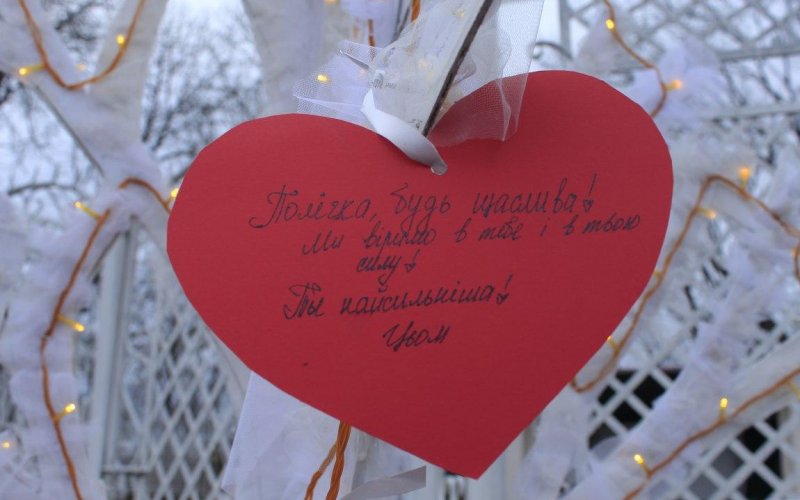 Полічка, будь щаслива!
Ми віримо в тебе і в твою
силу!
Ти найсильніша!
Цьом